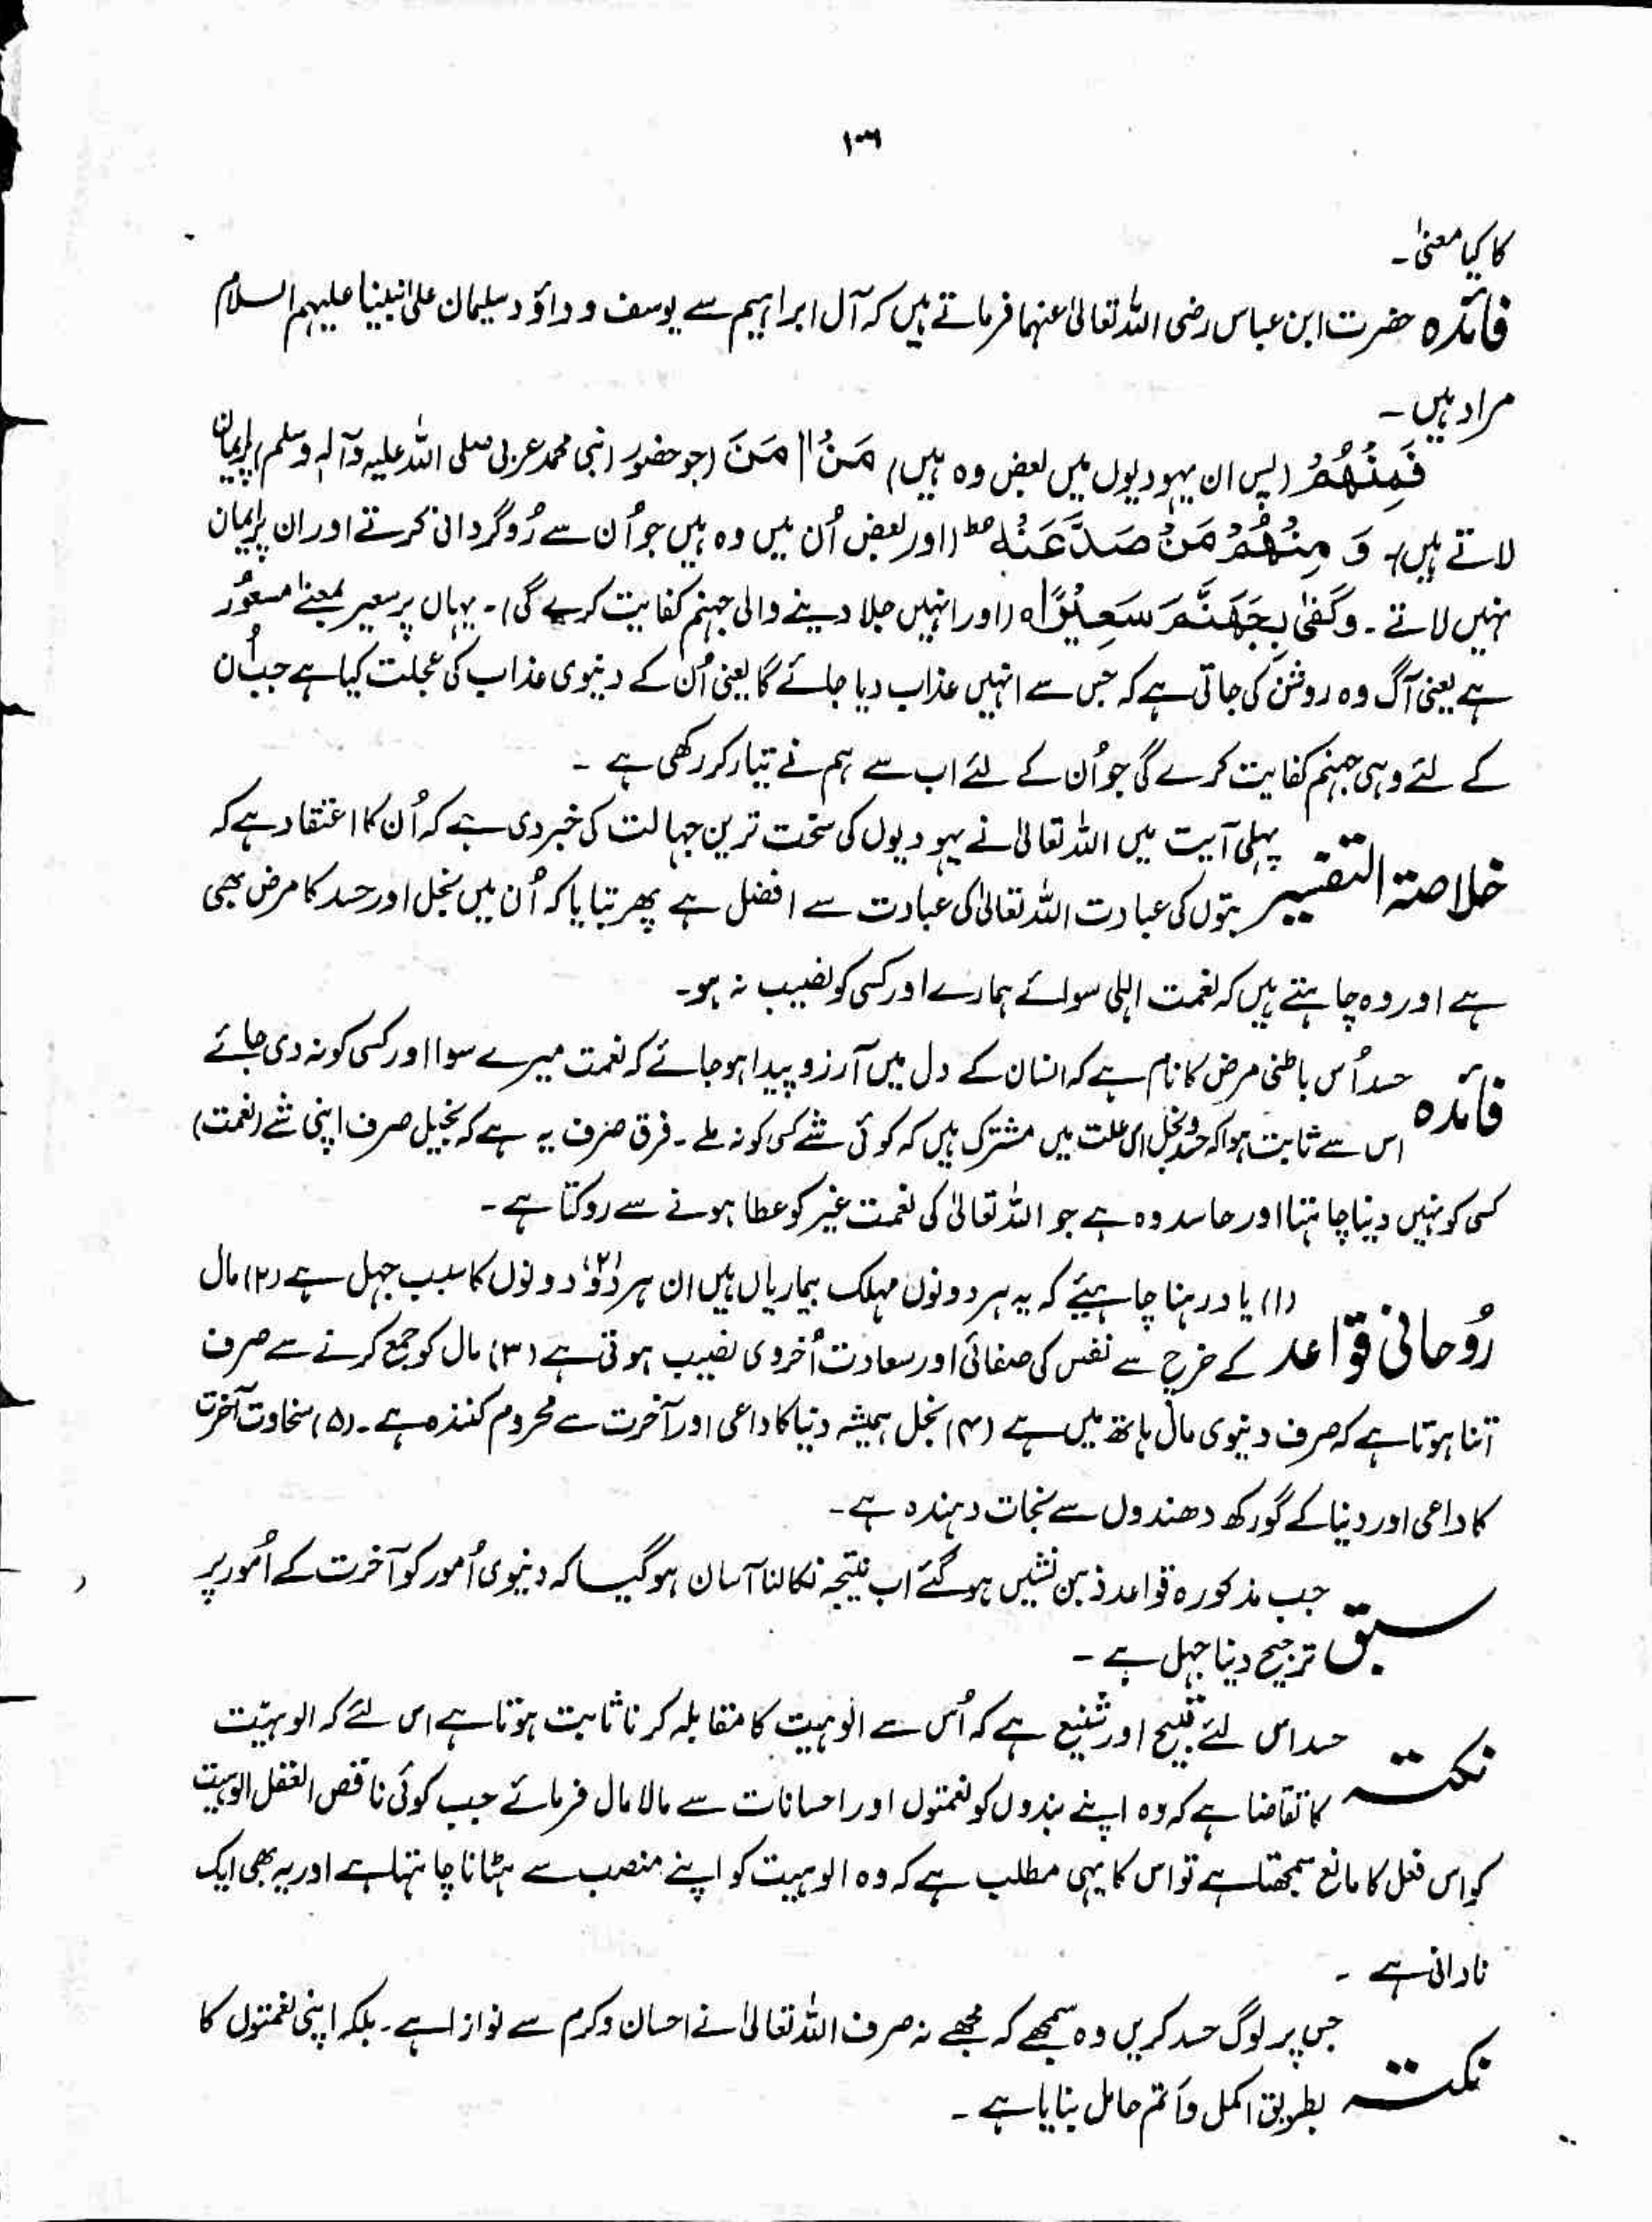 ۱۳۶
کا کیا معنیٰ۔
فائدہ حضرت ابن عباس رضی اللہ تعالیٰ عنہما فرماتے ہیں کہ آل ابراہیم سے یوسف و داؤد و سلیمان علیٰ نبینا علیہم السلام
مراد ہیں۔
فَمِنْهُمْ (پس ان یہودیوں میں بعض وہ ہیں) مَنْ اٰمَنَ (جو حضور نبی محمد عربی صلی اللہ علیہ وآلہ وسلم پر ایمان
لاتے ہیں)۔ وَ مِنْهُمْ مَنْ صَدَّ عَنْهُ ط (اور بعض اُن میں وہ ہیں جو اُن سے رُوگردانی کرتے اور ان پر ایمان
نہیں لاتے۔ وَكَفٰى بِجَهَنَّمَ سَعِيْرًا ہ (اور انہیں جلا دینے والی جہنم کفایت کرے گی)۔ یہاں پر سعیر بمعنے مسعوُر
ہے یعنی آگ وہ روشن کی جاتی ہے کہ جس سے انہیں عذاب دیا جائے گا یعنی اُن کے دنیوی عذاب کی عجلت کیا ہے جب اُن
کے لئے وہی جہنم کفایت کرے گی جو اُن کے لئے اب سے ہم نے تیار کر رکھی ہے ۔
خلاصۃ التفسیر پہلی آیت میں اللہ تعالیٰ نے یہودیوں کی سخت ترین جہالت کی خبر دی ہے کہ اُن کا اعتقاد ہے کہ
بتوں کی عبادت اللہ تعالیٰ کی عبادت سے افضل ہے پھر بتایا کہ اُن میں بخل اور حسد کا مرض بھی
ہے اور وہ چاہتے ہیں کہ نعمت الہٰی سوائے ہمارے اور کسی کو نصیب نہ ہو۔
فائدہ حسد اُس باطنی مرض کا نام ہے کہ انسان کے دل میں آرزو پیدا ہو جائے کہ نعمت میرے سوا اور کسی کو نہ دی جائے
اس سے ثابت ہوا کہ حسد و بخل اس علت میں مشترک ہیں کہ کوئی شے کسی کو نہ ملے۔ فرق صرف یہ ہے کہ بخیل صرف اپنی شے (نعمت)
کسی کو نہیں دینا چاہتا اور حاسد وہ ہے جو اللہ تعالیٰ کی نعمت غیر کو عطا ہونے سے روکتا ہے۔
رُوحانی قواعد (۱) یاد رہنا چاہیئے کہ یہ ہر دونوں مہلک بیماریاں ہیں ان ہر دُو (۲) دونوں کا سبب جہل ہے (۲) مال
کے خرچ سے نفس کی صفائی اور سعادت اُخروی نصیب ہوتی ہے (۳) مال کو جمع کرنے سے صرف
اتنا ہوتا ہے کہ صرف دنیوی مال ہاتھ میں ہے (۴) بخل ہمیشہ دنیا کا داعی اور آخرت سے محروم کنندہ ہے۔ (۵) سخاوت آخرت
کا داعی اور دنیا کے گورکھ دھندوں سے نجات دہندہ ہے۔
سبق جب مذکورہ قواعد ذہن نشیں ہو گئے اب نتیجہ نکالنا آسان ہو گیا کہ دنیوی اُمور کو آخرت کے اُمور پر
ترجیح دینا جہل ہے ۔
نکتہ حسد اس لئے قبیح اور شنیع ہے کہ اُس سے الوہیت کا مقابلہ کرنا ثابت ہوتا ہے اس لئے کہ الوہیت
کا تقاضا ہے کہ وہ اپنے بندوں کو نعمتوں اور احسانات سے مالا مال فرمائے جب کوئی ناقص العقل الوہیت
کو اس فعل کا مانع سمجھتا ہے تو اس کا یہی مطلب ہے کہ وہ الوہیت کو اپنے منصب سے ہٹانا چاہتا ہے اور یہ بھی ایک
نادانی ہے ۔
نکتہ جس پر لوگ حسد کریں وہ سمجھے کہ مجھے نہ صرف اللہ تعالیٰ نے احسان و کرم سے نوازا ہے۔ بلکہ اپنی نعمتوں کا
بطریق اکمل و اَتم حامل بنایا ہے ۔